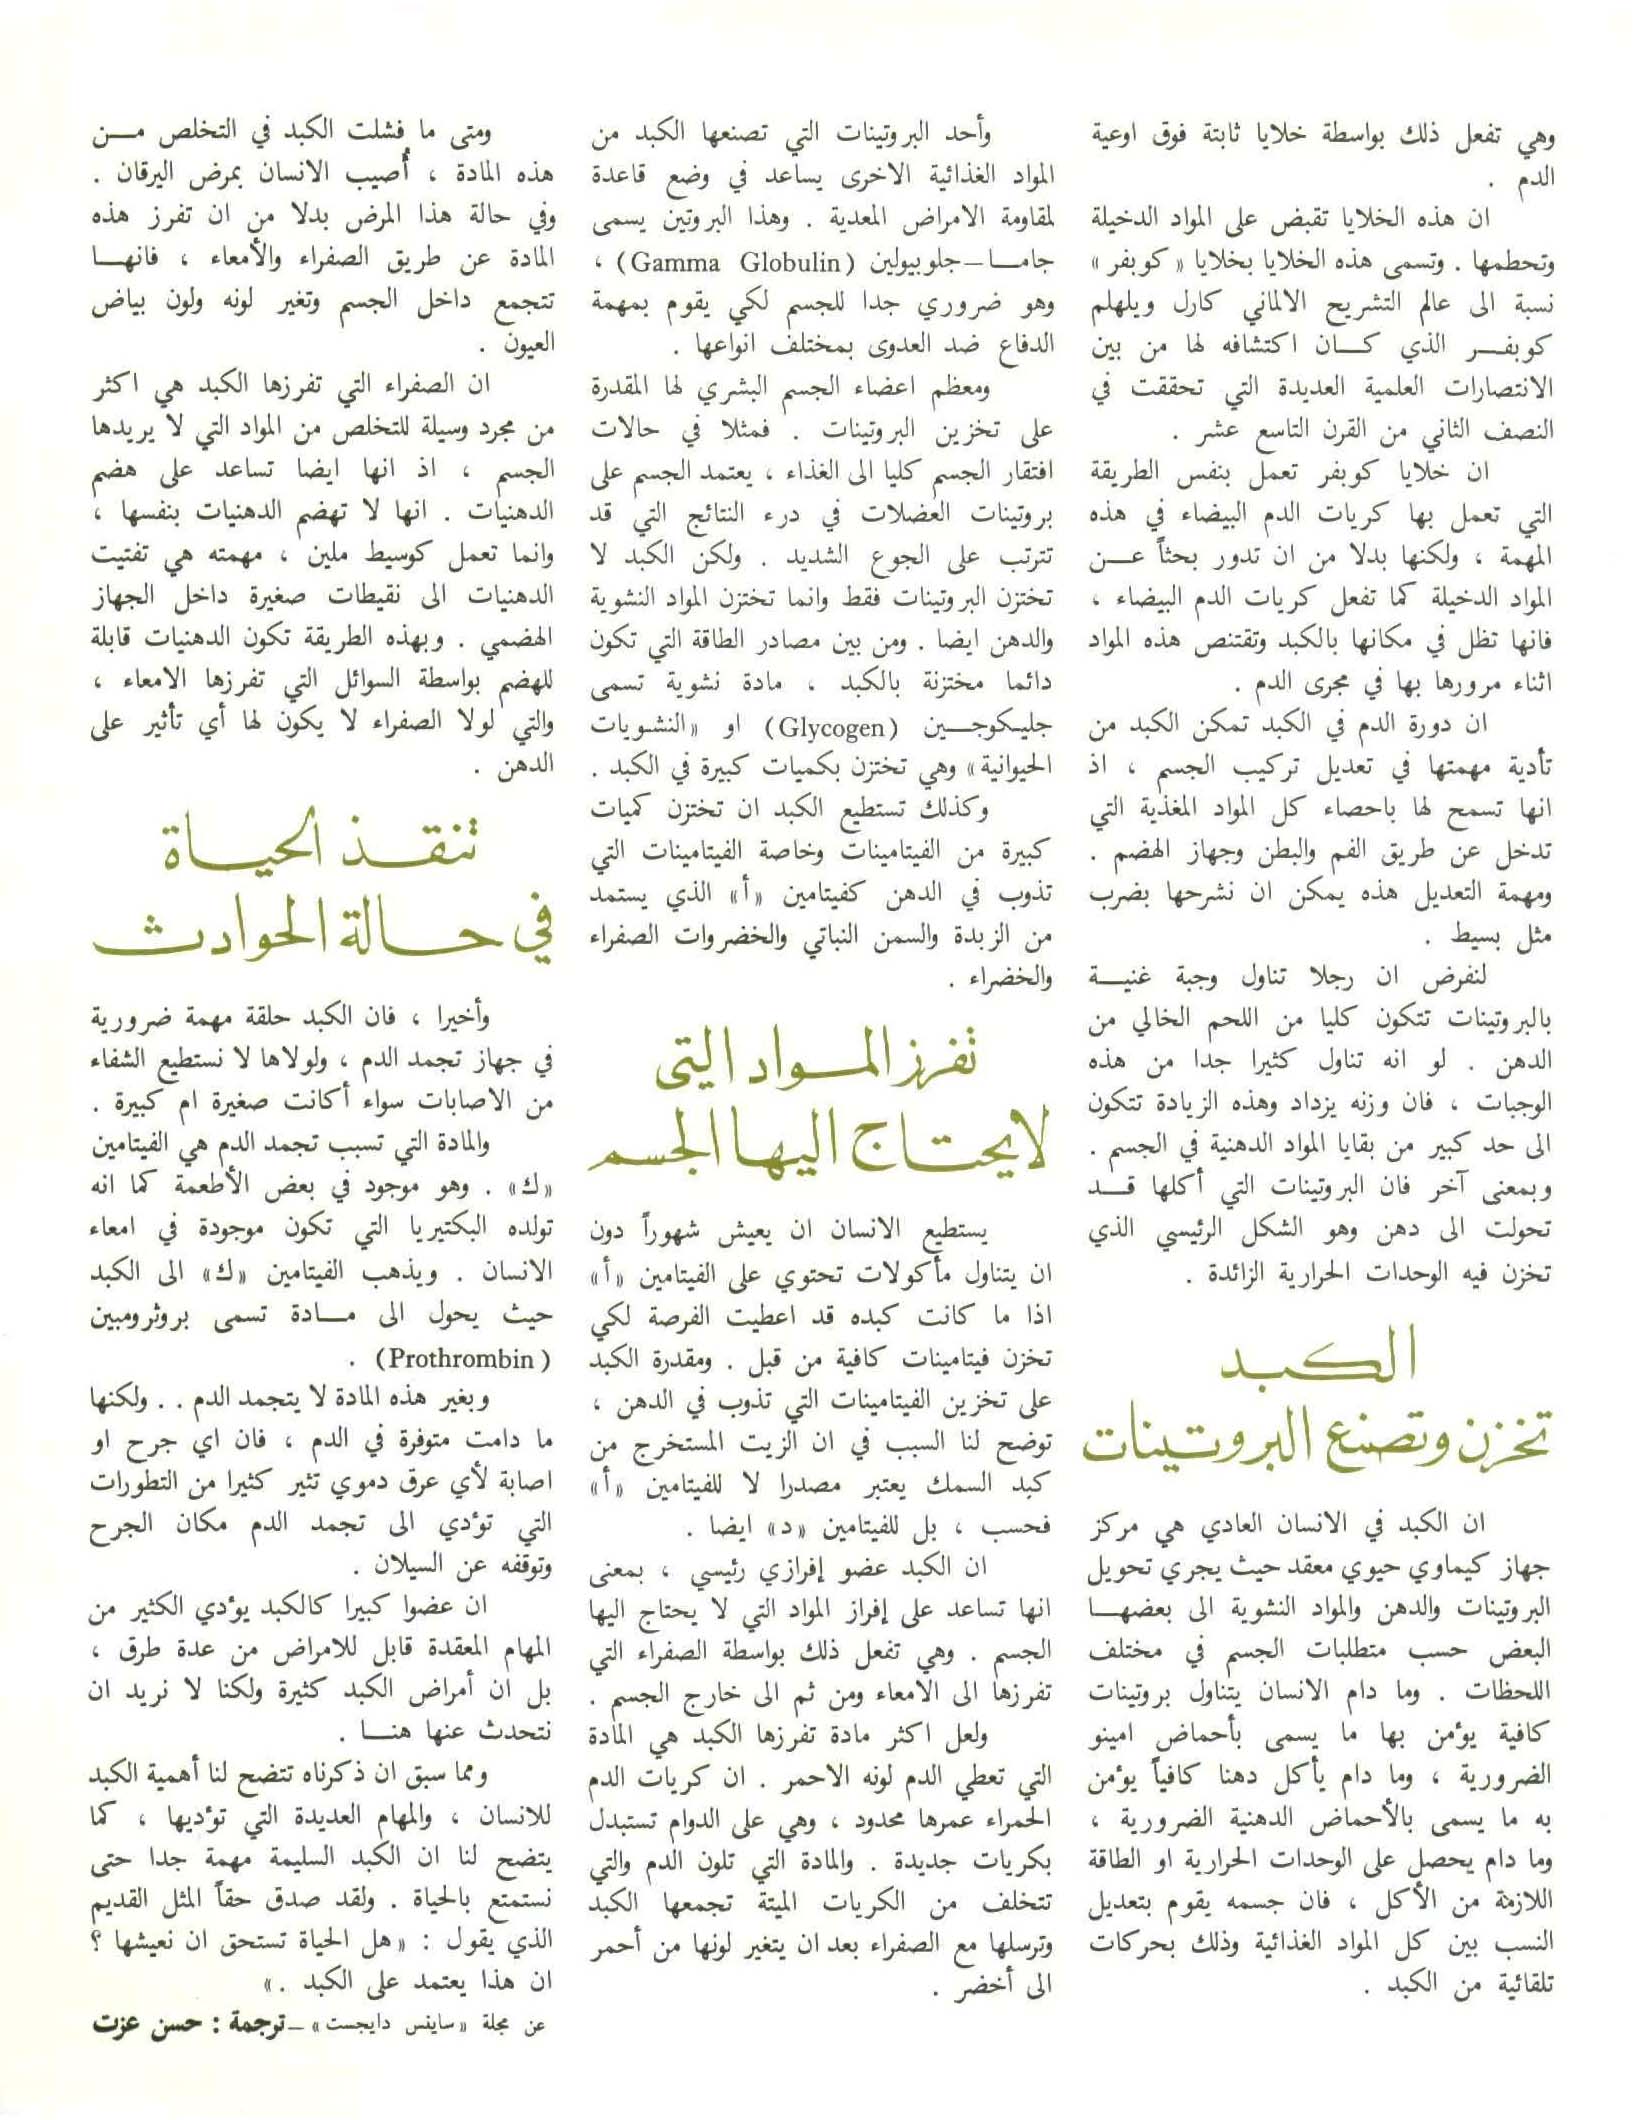 وهي تفعل ذلك بواسطة خلايا ثابتة فوق اوعية
الدم .
ان هذه الخلايا تقبض على المواد الدخيلة
وتحطمها . وتسمى هذه الخلايا بخلايا «كوبفر»
نسبة الى عالم التشريح الالماني كارل ويلهلم
كوبفــر الذي كــان اكتشافه لها من بين
الانتصارات العلمية العديدة التي تحققت في
النصف الثاني من القرن التاسع عشر .
ان خلايا كوبفر تعمل بنفس الطريقة
التي تعمل بها كريات الدم البيضاء في هذه
المهمة ، ولكنها بدلا من ان تدور بحثاً عــن
المواد الدخيلة كما تفعل كريات الدم البيضاء ،
فانها تظل في مكانها بالكبد وتقتنص هذه المواد
اثناء مرورها بها في مجرى الدم .
ان دورة الدم في الكبد تمكن الكبد من
تأدية مهمتها في تعديل تركيب الجسم ، اذ
انها تسمح لها باحصاء كل المواد المغذية التي
تدخل عن طريق الفم والبطن وجهاز الهضم .
ومهمة التعديل هذه يمكن ان نشرحها بضرب
مثل بسيط .
لنفرض ان رجلا تناول وجبة غنيــة
بالبروتينات تتكون كليا من اللحم الخالي من
الدهن . لو انه تناول كثيرا جدا من هذه
الوجبات ، فان وزنه يزداد وهذه الزيادة تتكون
الى حد كبير من بقايا المواد الدهنية في الجسم .
وبمعنى آخر فان البروتينات التي أكلها قــد
تحولت الى دهن وهو الشكل الرئيسي الذي
تخزن فيه الوحدات الحرارية الزائدة .
الكبد
تخزن وتصنع البروتينات
ان الكبد في الانسان العادي هي مركز
جهاز كيماوي حيوي معقد حيث يجري تحويل
البروتينات والدهن والمواد النشوية الى بعضهــا
البعض حسب متطلبات الجسم في مختلف
اللحظات . وما دام الانسان يتناول بروتينات
كافية يؤمن بها ما يسمى بأحماض امينو
الضرورية ، وما دام يأكل دهنا كافياً يؤمن
به ما يسمى بالأحماض الدهنية الضرورية ،
وما دام يحصل على الوحدات الحرارية او الطاقة
اللازمة من الأكل ، فان جسمه يقوم بتعديل
النسب بين كل المواد الغذائية وذلك بحركات
تلقائية من الكبد .
وأحد البروتينات التي تصنعها الكبد من
المواد الغذائية الاخرى يساعد في وضع قاعدة
لمقاومة الامراض المعدية . وهذا البروتين يسمى
جامــا-جلوبيولين (Gamma Globulin) ،
وهو ضروري جدا للجسم لكي يقوم بمهمة
الدفاع ضد العدوى بمختلف انواعها .
ومعظم اعضاء الجسم البشري لها المقدرة
على تخزين البروتينات . فمثلا في حالات
افتقار الجسم كليا الى الغذاء ، يعتمد الجسم على
بروتينات العضلات في درء النتائج التي قد
تترتب على الجوع الشديد . ولكن الكبد لا
تختزن البروتينات فقط وانما تختزن المواد النشوية
والدهن ايضا . ومن بين مصادر الطاقة التي تكون
دائما مختزنة بالكبد ، مادة نشوية تسمى
جليكوجــين (Glycogen) او «النشويات
الحيوانية» وهي تختزن بكميات كبيرة في الكبد .
وكذلك تستطيع الكبد ان تختزن كميات
كبيرة من الفيتامينات وخاصة الفيتامينات التي
تذوب في الدهن كفيتامين «أ» الذي يستمد
من الزبدة والسمن النباتي والخضروات الصفراء
والخضراء .
تفرز المواد التي
لا يحتاج اليها الجسم
يستطيع الانسان ان يعيش شهوراً دون
ان يتناول مأكولات تحتوي على الفيتامين «أ»
اذا ما كانت كبده قد اعطيت الفرصة لكي
تخزن فيتامينات كافية من قبل . ومقدرة الكبد
على تخزين الفيتامينات التي تذوب في الدهن ،
توضح لنا السبب في ان الزيت المستخرج من
كبد السمك يعتبر مصدرا لا للفيتامين «أ»
فحسب ، بل للفيتامين «د» ايضا .
ان الكبد عضو إفرازي رئيسي ، بمعنى
انها تساعد على إفراز المواد التي لا يحتاج اليها
الجسم . وهي تفعل ذلك بواسطة الصفراء التي
تفرزها الى الامعاء ومن ثم الى خارج الجسم .
ولعل اكثر مادة تفرزها الكبد هي المادة
التي تعطي الدم لونه الاحمر . ان كريات الدم
الحمراء عمرها محدود ، وهي على الدوام تستبدل
بكريات جديدة . والمادة التي تلون الدم والتي
تتخلف من الكريات الميتة تجمعها الكبد
وترسلها مع الصفراء بعد ان يتغير لونها من أحمر
الى أخضر .
ومتى ما فشلت الكبد في التخلص مــن
هذه المادة ، أُصيب الانسان بمرض اليرقان .
وفي حالة هذا المرض بدلا من ان تفرز هذه
المادة عن طريق الصفراء والأمعاء ، فانهــا
تتجمع داخل الجسم وتغير لونه ولون بياض
العيون .
ان الصفراء التي تفرزها الكبد هي اكثر
من مجرد وسيلة للتخلص من المواد التي لا يريدها
الجسم ، اذ انها ايضا تساعد على هضم
الدهنيات . انها لا تهضم الدهنيات بنفسها ،
وانما تعمل كوسيط ملين ، مهمته هي تفتيت
الدهنيات الى نقيطات صغيرة داخل الجهاز
الهضمي . وبهذه الطريقة تكون الدهنيات قابلة
للهضم بواسطة السوائل التي تفرزها الامعاء ،
والتي لولا الصفراء لا يكون لها أي تأثير على
الدهن .
تنقذ الحياة
في حالة الحوادث
وأخيرا ، فان الكبد حلقة مهمة ضرورية
في جهاز تجمد الدم ، ولولاها لا نستطيع الشفاء
من الاصابات سواء أكانت صغيرة ام كبيرة .
والمادة التي تسبب تجمد الدم هي الفيتامين
«ك» . وهو موجود في بعض الأطعمة كما انه
تولده البكتيريا التي تكون موجودة في امعاء
الانسان . ويذهب الفيتامين «ك» الى الكبد
حيث يحول الى مــادة تسمى بروثرومبين
(Prothrombin) .
وبغير هذه المادة لا يتجمد الدم . . ولكنها
ما دامت متوفرة في الدم ، فان اي جرح او
اصابة لأي عرق دموي تثير كثيرا من التطورات
التي تؤدي الى تجمد الدم مكان الجرح
وتوقفه عن السيلان .
ان عضوا كبيرا كالكبد يؤدي الكثير من
المهام المعقدة قابل للامراض من عدة طرق ،
بل ان أمراض الكبد كثيرة ولكنا لا نريد ان
نتحدث عنها هنــا .
ومما سبق ان ذكرناه تتضح لنا أهمية الكبد
للانسان ، والمهام العديدة التي تؤديها ، كما
يتضح لنا ان الكبد السليمة مهمة جدا حتى
نستمتع بالحياة . ولقد صدق حقاً المثل القديم
الذي يقول : «هل الحياة تستحق ان نعيشها ؟
ان هذا يعتمد على الكبد .»
عن مجلة «ساينس دايجست» – ترجمة : حسن عزت